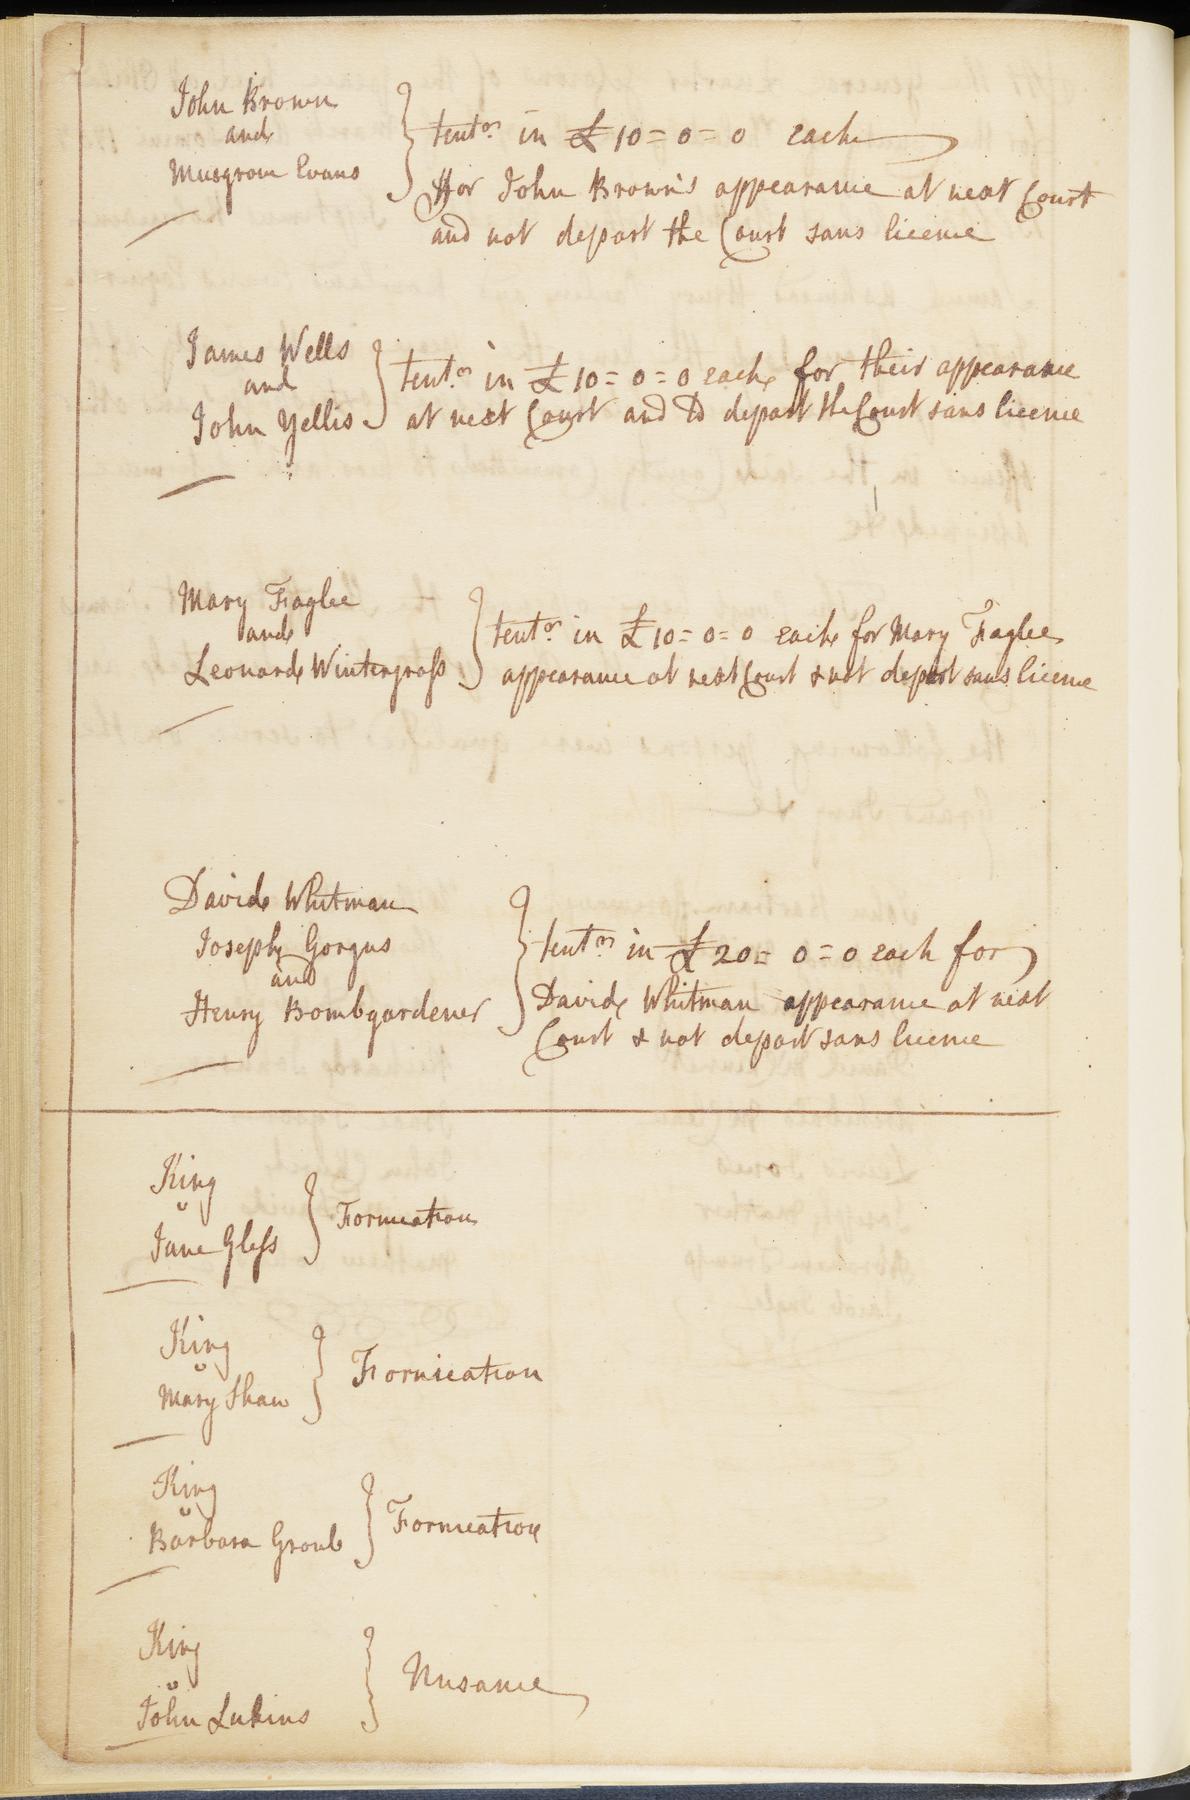 John Brown
and
Musgrove Evans
tentr. in £10=0=0 each
ffor John Brown's appearance at next Court
and not depart the Court sans licence
James Wells
and
John Yellis
tentr. in £10=0=0 each for their appearance
at next Court and to depart the Court sans licence
Mary Faglee
and
Leonard Wintergrass
tentr. in £10=0=0 each for Mary Faglee
appearance at next Court & not depart sans licence
David Whitman
Joseph Gorgus
and
Henry Bombgardener
tentr. in £20=0=0 each for
David Whitman appearance at next
Court & not depart sans licence
King
v
Jane Gless
Fornication
King
v
Mary Shaw
Fornication
King
v
Barbara Groub
Fornication
King
v
John Lukins
Nusance